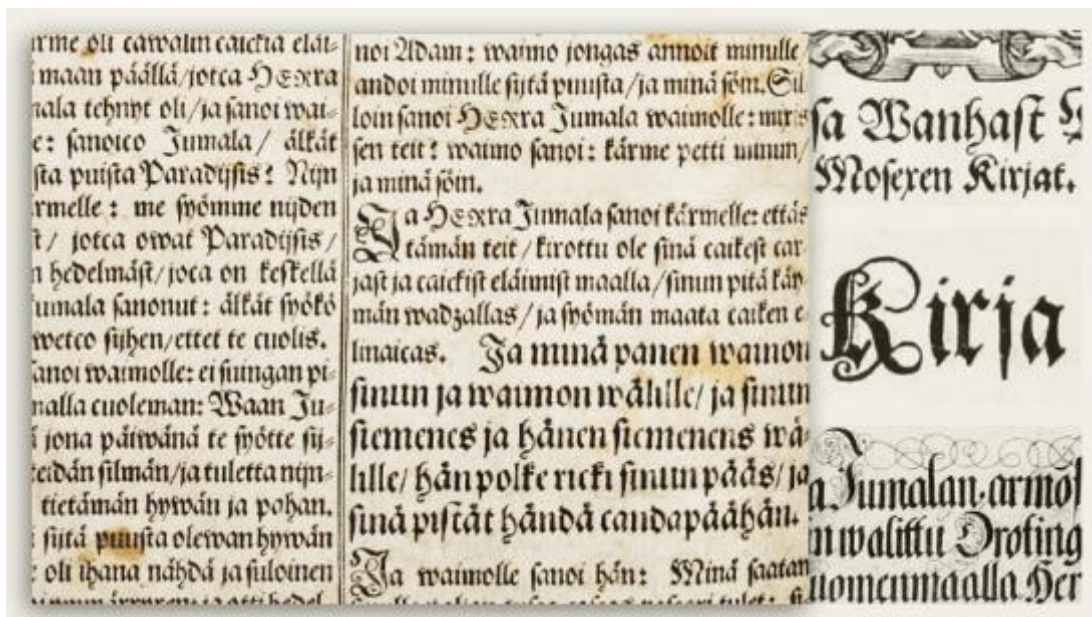 oli cawalin caickia eläi-
maan päällä/jotca HERra
tehnyt oli/ja sanoi wai-
sanoico Jumala/ älkät
puista Paradijsis? Nijn
me syömme nijden
jotca owat Paradijsis/
hedelmäst/joca on keskellä
sanonut: älkät syökö
sijhen/ettet te cuolis.
waimolle: ei suingan pi-
cuoleman: Waan Ju-
jona päiwänä te syötte sij-
silmän/ja tuletta nijn-
tietämän hywän ja pahan.
sijtä puusta olewan hywän
oli ihana nähdä ja suloinen
noi Adam: waimo jongas annoit minulle
andoi minulle sijtä puusta/ja minä söin. Sil
loin sanoi HERra Jumala waimolle:
sen teit? waimo sanoi: kärme petti minun/
ja minä söin.
Ja HERra Jumala sanoi kärmelle: ettäs
tämän teit/kirottu ole sinä caikest car
jast ja caickist eläimist maalla/sinun pitä käy
män wadzallas/ja syömän maata caiken e-
linaicas. Ja minä panen wainon
sinun ja waimon wälille/ ja sinun
siemenes ja hänen siemenens wä-
lille/ hän polke ricki sinun pääs/ ja
sinä pistät händä candapäähän.
Ja waimolle sanoi hän: Minä saatan
sa Wanhast
Mosexen Kirjat.
Kirja
Jumalan armos
walittu Droting
Her